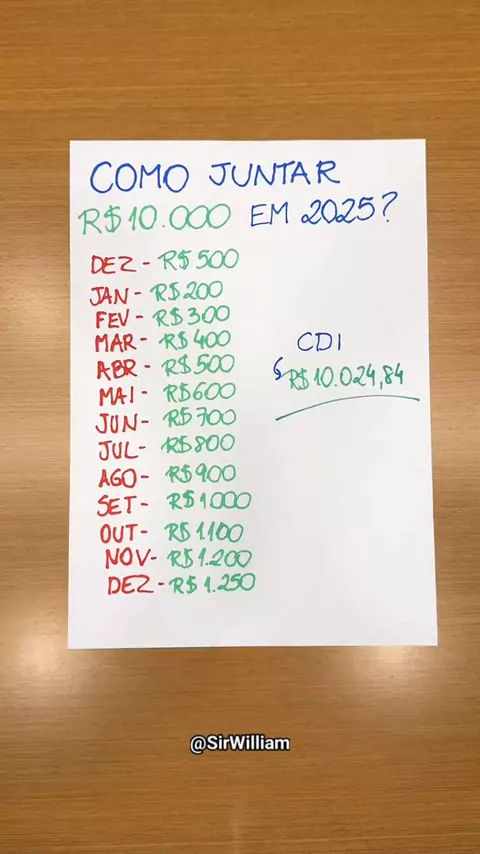 COMO JUNTAR
R$10.000 EM 2025?
DEZ - R$500
JAN - R$200
FEV - R$300
MAR - R$400
ABR - R$500
MAI - R$600
JUN - R$700
JUL - R$800
AGO - R$900
SET - R$1.000
OUT - R$1.100
NOV - R$1.200
DEZ - R$1.250
CDI
R$10.024,84
@SirWilliam